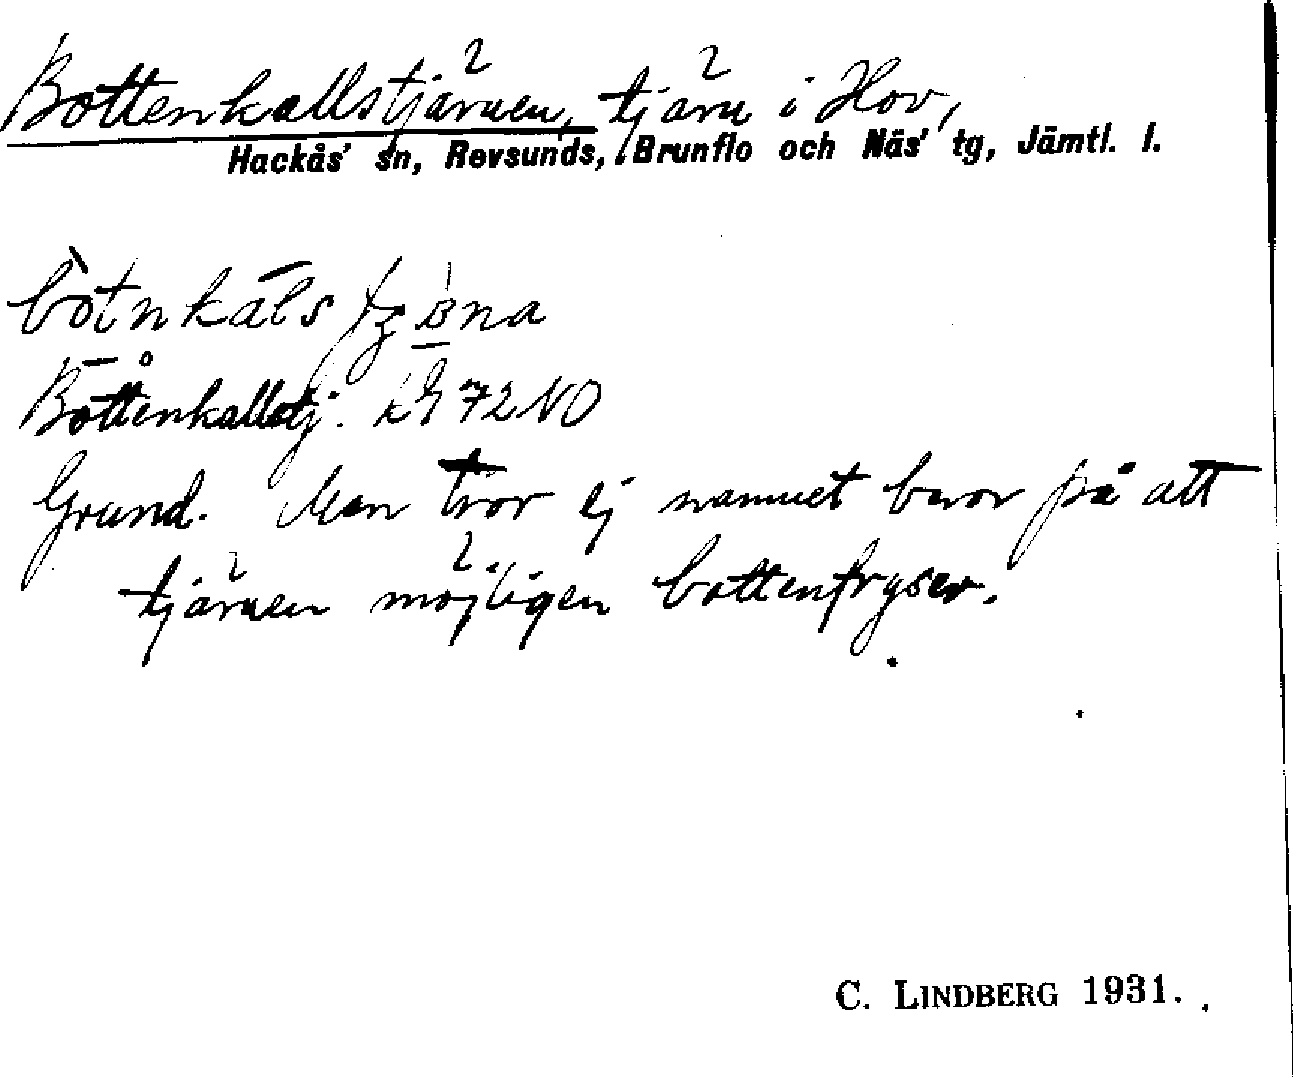 Bottenkallstjärnen, tjärn i Hov,
Hackås' sn, Revsunds, Brunflo och Näs' tg, Jämtl. l.
Bottenkallstj. 72 NO
Grund. Man tror ej namnet beror på att
tjärnen möjligen bottenfryser.
C. LINDBERG 1931.